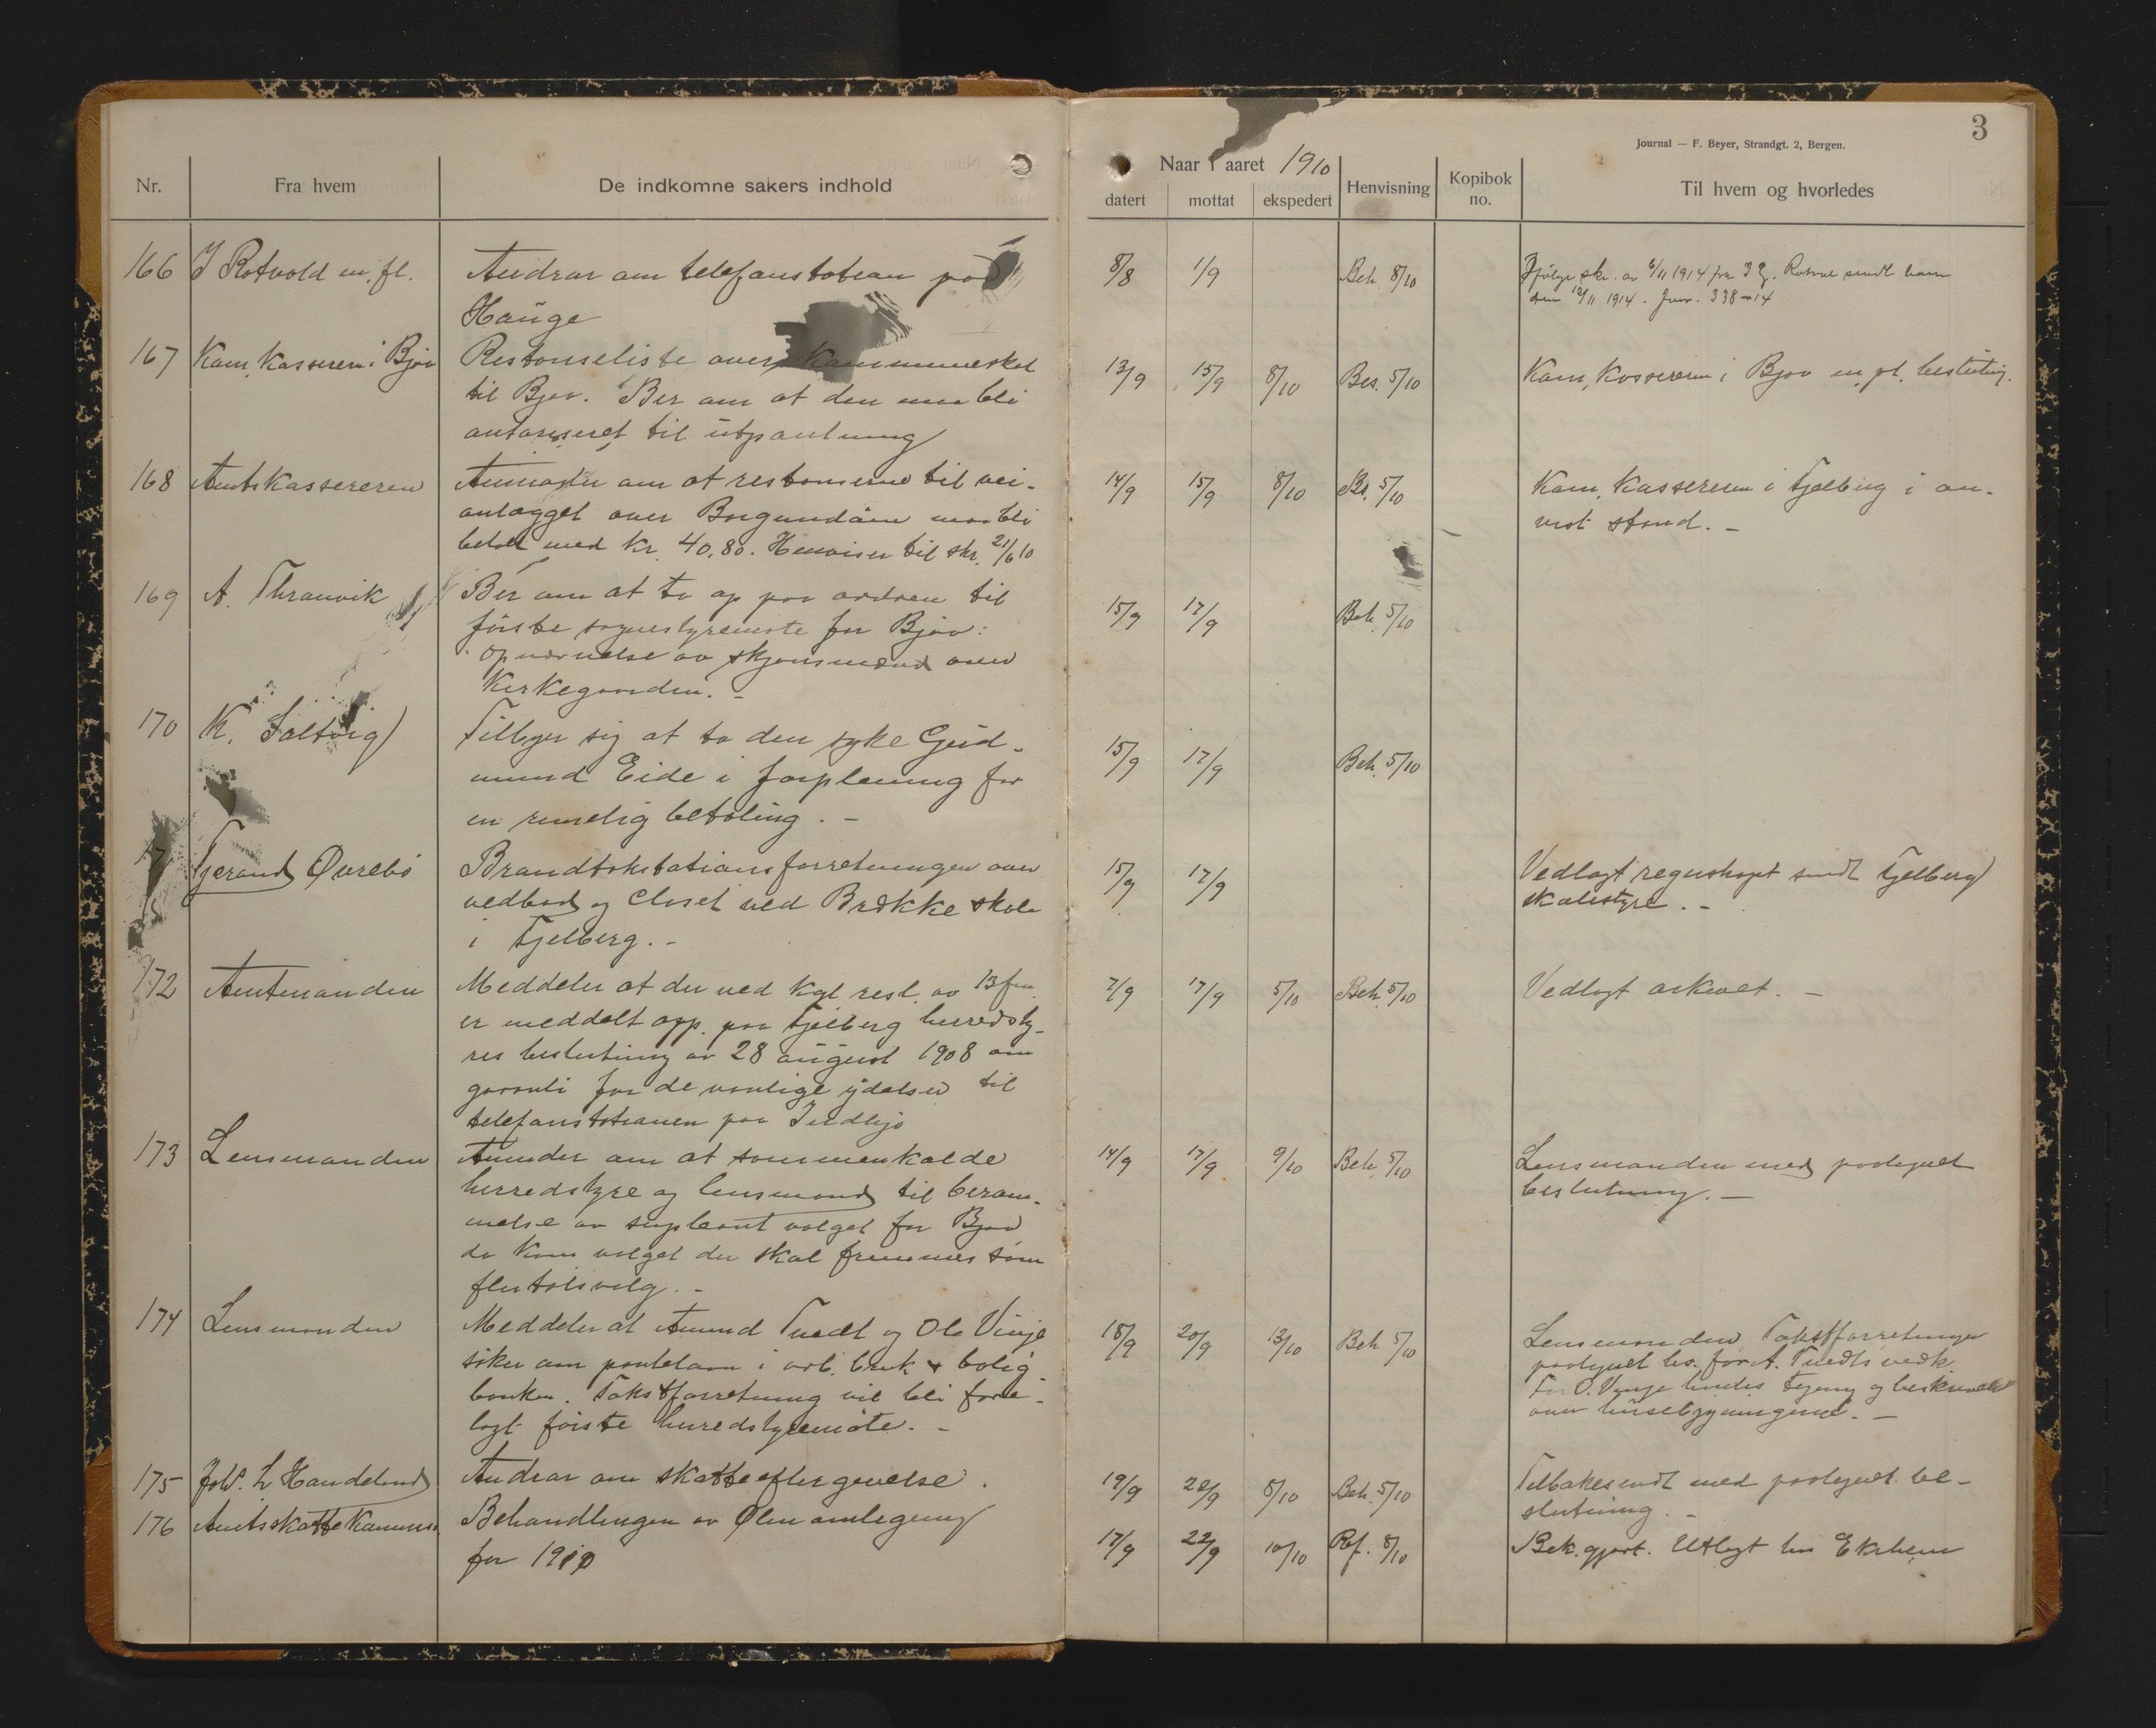 3
Journal — F. Beyer, Strandgt. 2, Bergen.
Nr. Fra hvem De indkomne sakers indhold
Naar i aaret 1910 datert mottat ekspedert Henvisning Kopibok no. Til hvem og hvorledes
166 J Rotvold m. fl. Andrar om telefonstation paa 8/8 1/9 Beh. 8/10 Ifölge skr. av 6/11 1914 fra sendt ham
Hauge den 12/11 1914. Jnr. 338-14
167 Kom, Kasseren i Bjoa Restanseliste over Kommuneskat 13/9 15/9 8/10 Bes. 5/10 Kom, Kassereren i Bjoa m. pt. beslutnig.
til Bjoa. Ber om at den maa bli
autoriseret til utpantning
168 Amtskassereren Anmoder om at restanserne til vei- 14/9 15/9 8/10 Bs. 5/10 Kom, Kassereren i Fjelberg i an-
anlægget over Borgundåsen maa bli vist stand. -
betalt med kr. 40,80. Henviser til skr. 21/6 10
169 A. Thranvik Ber om at ta op paa ordren til 15/9 17/9 Beh. 5/10
förste sognestyremöte for Bjoa:
Opnævnelse av skjönsmænd over
Kirkegaarden. -
170 K. Saltvig Tilbyr sig at ta den syke Gud- 15/9 17/9 Beh. 5/10
mund Eide i forpleining for
en rimelig betaling. -
17 Tjerand Øvrebö Brandtakstationsforretningen over 15/9 17/9 Vedlagt regnskapet sendt Fjelberg
vedbod og Closet ved Brække skole skolestyre. -
i Fjelberg. -
172 Amtmanden Meddeler at der ved kgl. resl. av 13 7/9 17/9 5/10 Beh. 5/10 Vedlagt arkivet. -
er meddelt app. paa Fjelberg herredsty-
res beslutning av 28 august 1908 om
garanti for de vanlige ydelser til
telefonstationen paa Indbjo
173 Lensmanden Anmoder om at sammenkalde 14/9 17/9 9/10 Beh. 5/10 Lensmanden med paategnet
herredstyre og lensmand til beram- beslutning. -
melse av supleant valget for Bjoa
da kom valget der skal fremmes som
flertalsvalg. -
174 Lensmanden Meddeler at Amund Tvedt og Ole Vinje 18/9 20/9 13/10 Beh 5/10 Lensmanden, Takstforretningen
söker om pantelaan i arb. bruk & bolig paategnet hs. for A. Tvedts vedk.
banken. Takstforretning vil bli fore- For O. Vinje og beskrivelse
lagt förste herredstyremöte. - over husebygningene. -
175 Joh. L Handeland Andrar om skatteeftergivelse. 19/9 20/9 8/10 Beh. 5/10 Tilbakesendt med paategnet be-
slutning. -
176 Amtsskattekommis. Behandlingen av Ølen amlegning 17/9 22/9 10/10 Ref. 8/10 Bek. gjort. Utlagt hos Ekrheim
for 1910